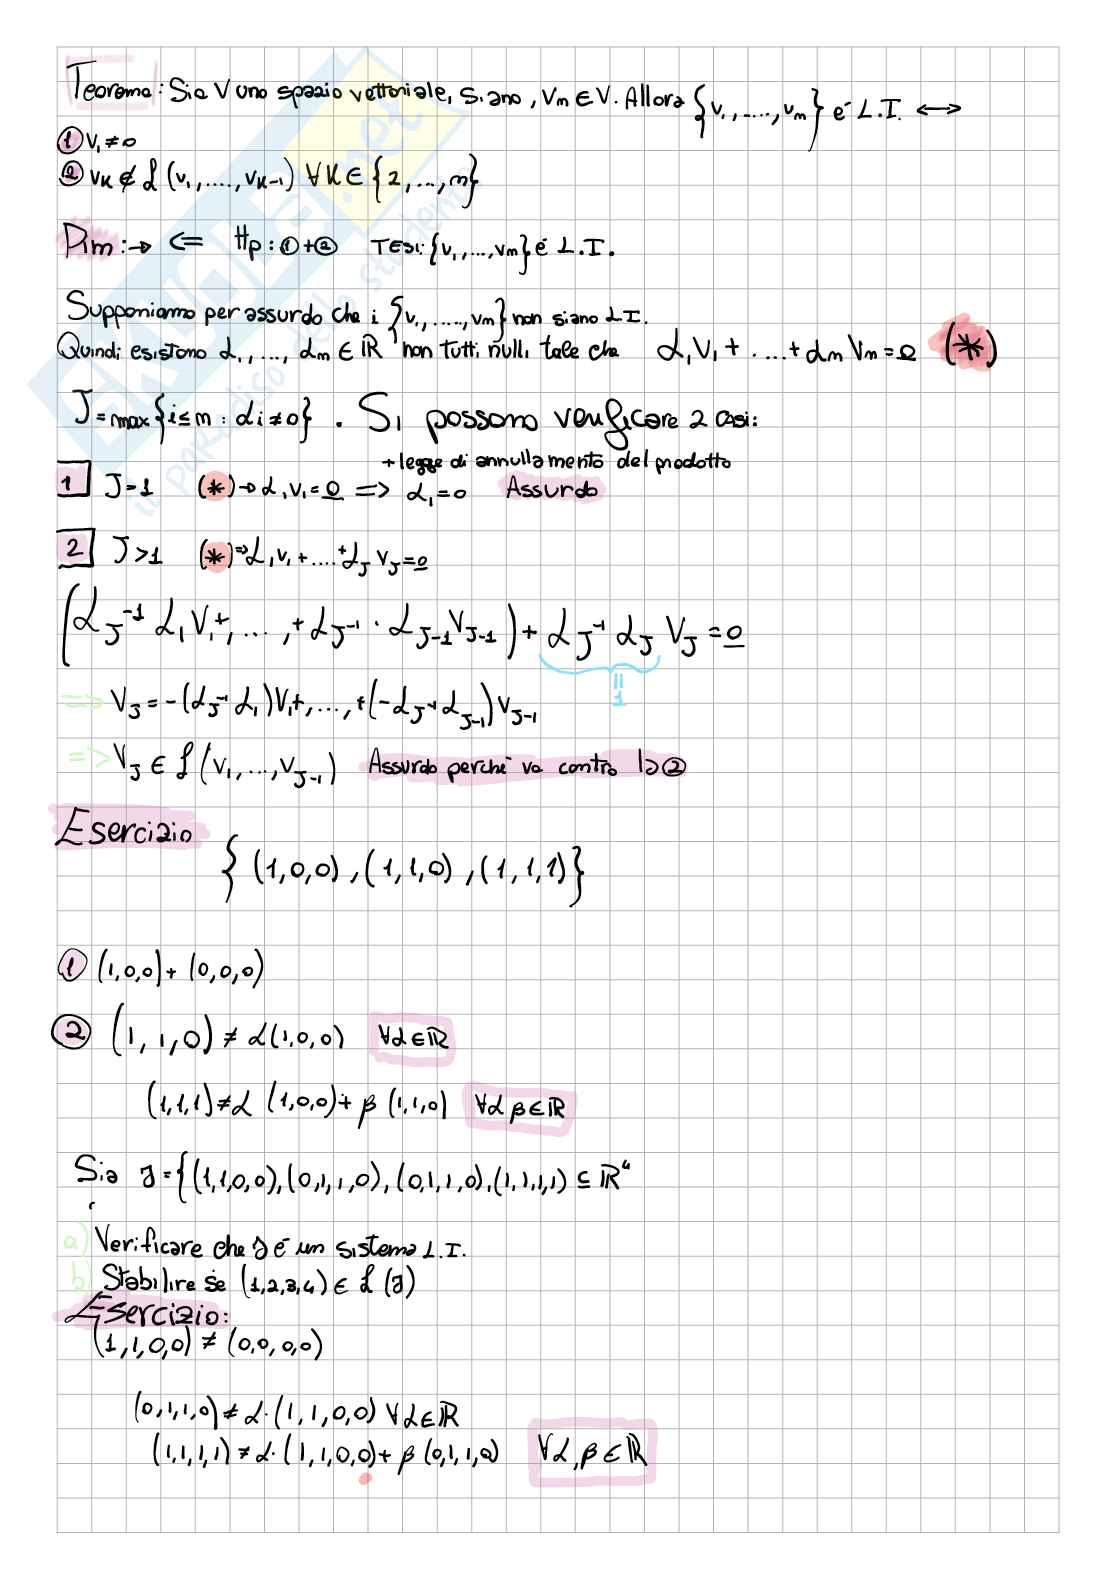 Teorema: Sia V uno spazio vettoriale, siano, Vm ∈ V. Allora {v1,....,vm} è L.I. ⟷
① V1 ≠ 0
② VK ∉ ℒ (v1,....,vK-1) ∀K ∈ {2,...,m}
Dim: → ⇐ Hp: ①+② TESI: {v1,...,vm} è L.I.
Supponiamo per assurdo che i {v1,....,vm} non siano L.I.
Quindi esistono α1,...,αm ∈ ℝ non tutti nulli tale che α1V1 + ... + αmVm = 0 (*)
J = max{i ≤ m : αi ≠ 0} . Si possono verificare 2 casi:
+ legge di annullamento del prodotto
1 J=1 (*) → α1V1 = 0 => α1 = 0 Assurdo
2 J>1 (*) => α1V1 + .... + αJ VJ = 0
(αJ⁻¹ α1V1+,...,+αJ⁻¹ · αJ-1VJ-1) + αJ⁻¹ αJ VJ = 0
=1
=> VJ = -(αJ⁻¹ α1)V1+,...,+(-αJ⁻¹αJ-1)VJ-1
=> VJ ∈ ℒ(V1,...,VJ-1) Assurdo perché va contro la ②
Esercizio
{(1,0,0),(1,1,0),(1,1,1)}
① (1,0,0)+(0,0,0)
② (1,1,0) ≠ α(1,0,0) ∀α∈ℝ
(1,1,1) ≠ α (1,0,0)+ β (1,1,0) ∀α β∈ℝ
Sia J = {(1,1,0,0),(0,1,1,0),(0,1,1,0),(1,1,1,1) ⊆ ℝ⁴
a) Verificare che J è un sistema L.I.
b) Stabilire se (1,2,3,4) ∈ ℒ (J)
Esercizio:
(1,1,0,0) ≠ (0,0,0,0)
(0,1,1,0) ≠ α·(1,1,0,0) ∀α∈ℝ
(1,1,1,1) ≠ α·(1,1,0,0)+ β (0,1,1,0) ∀α,β ∈ℝ
SKUOLA.net
il paradiso dello studente